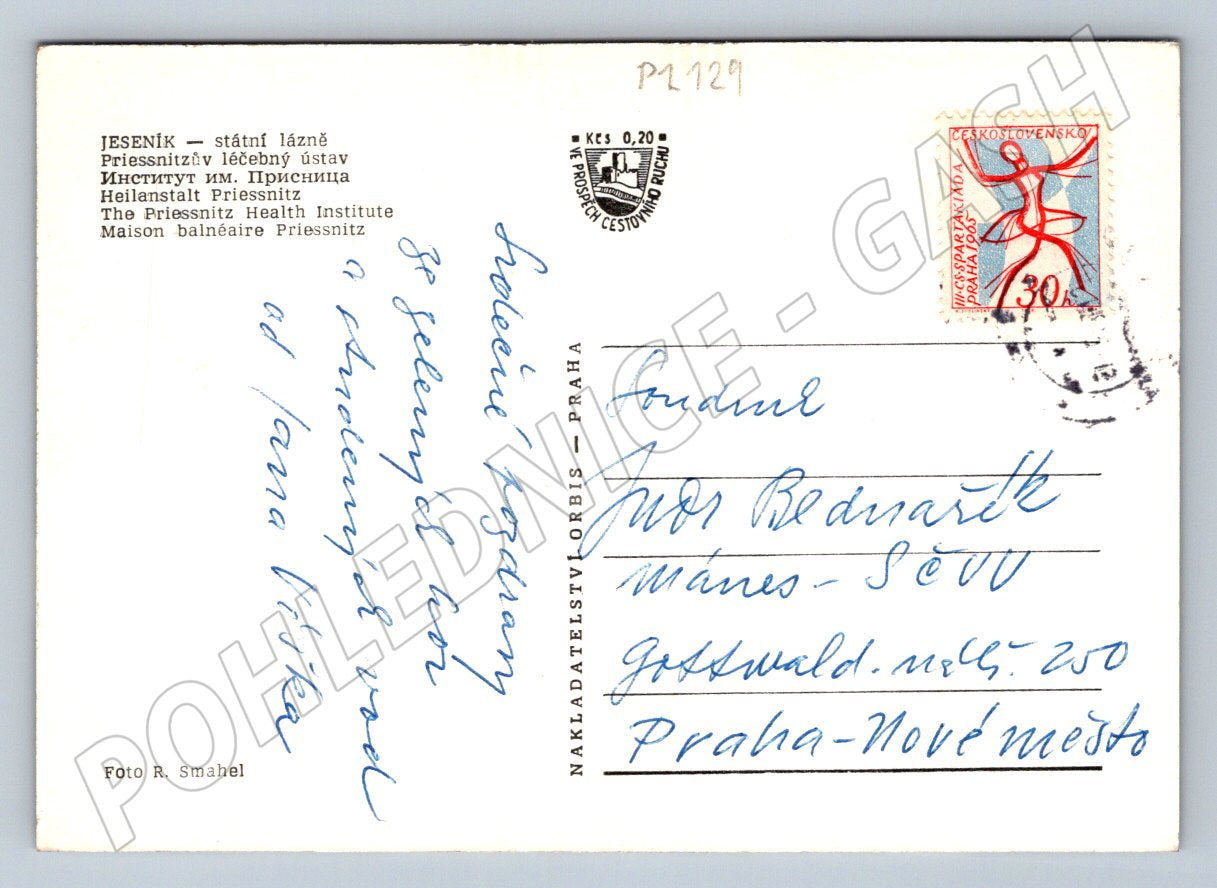 P2129
JESENÍK — státní lázně
Priessnitzův léčebný ústav
Институт им. Присница
Heilanstalt Priessnitz
The Priessnitz Health Institute
Maison balnéaire Priessnitz
Kčs 0,20
VE PROSPĚCH CESTOVNÍHO RUCHU
ČESKOSLOVENSKO
III·CS·SPARTAKIÁDA
PRAHA 1965
30 h
Srdečné pozdravy
ze zelených hor
a studených vod
od Jana
NAKLADATELSTVÍ ORBIS — PRAHA
Soudruh
JUDr Bednařík
Mánes - SČVU
Gottwald. nábř. 250
Praha - Nové město
Foto R. Smahel
POHLEDNICE - GASH